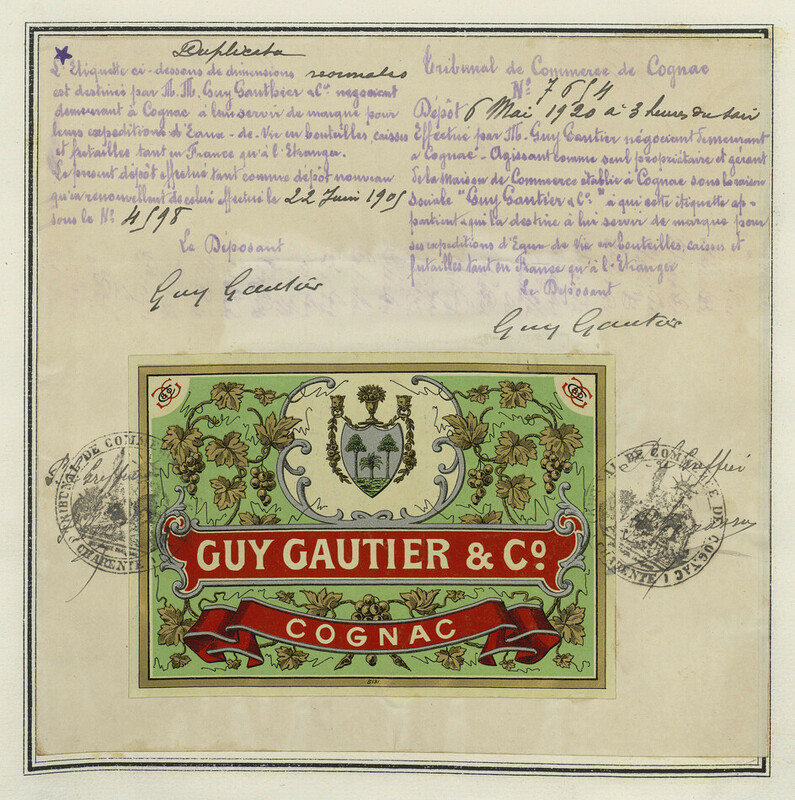 Duplicata
L'Etiquette ci-dessous de dimensions normales
est destinée par M.M. Guy Gauthier & Co. negociant
demeurant à Cognac à leur servir de marque pour
leurs expéditions d'Eaux-de-Vie en bouteilles, caisses
et futailles tant en France qu'à l'Etranger.
Le présent dépôt effectué tant comme dépôt nouveau
qu'en renouvellement de celui effectué le 22 Juin 1905
sous le No 4598
Le Déposant
Guy Gautier
Tribunal de Commerce de Cognac
No 7654
Dépôt 6 Mai 1920 à 3 heures du soir
Effectué par M. Guy Gautier négociant demeurant
à Cognac - Agissant comme seul propriétaire et gérant
de la Maison de Commerce établie à Cognac sous la raison
sociale "Guy Gautier & Co." à qui cette étiquette ap-
partient & qui la destine à lui servir de marque pour
ses expéditions d'Eaux de Vie en bouteilles, caisses et
futailles tant en France qu'à l'Etranger
Le Déposant
Guy Gautier
GUY GAUTIER & Co.
COGNAC
TRIBUNAL DE COMMERCE
CHARENTE
Le Greffier
DE COMMERCE DE COGNAC
CHARENTE
Le Greffier